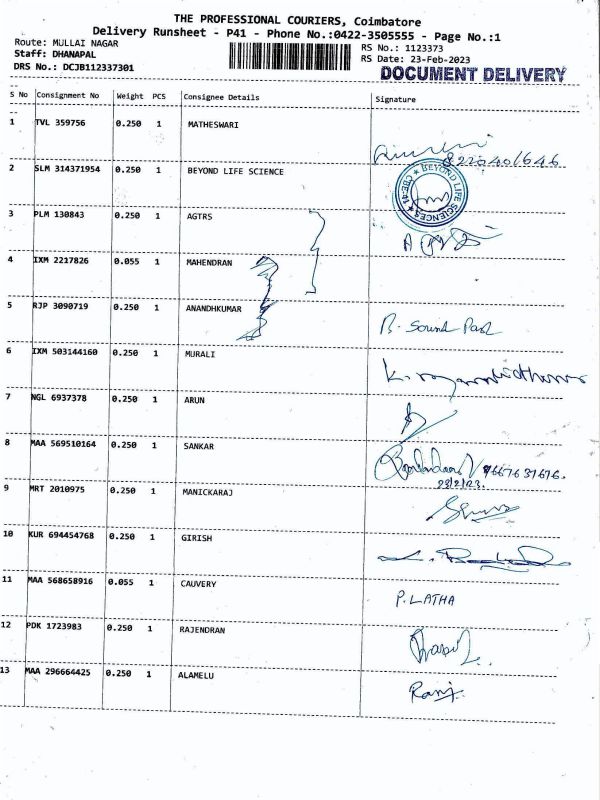 THE PROFESSIONAL COURIERS, Coimbatore
Delivery Runsheet - P41 - Phone No.:0422-3505555 - Page No.:1
Route: MULLAI NAGAR
Staff: DHANAPAL
DRS No.: DCJB112337301
RS No.: 1123373
RS Date: 23-Feb-2023
DOCUMENT DELIVERY
S No Consignment No Weight PCS Consignee Details Signature
1 TVL 359756 0.250 1 MATHESWARI
2 SLM 314371954 0.250 1 BEYOND LIFE SCIENCE
BEYOND LIFE SCIENCES
3 PLM 130843 0.250 1 AGTRS
4 IXM 2217826 0.055 1 MAHENDRAN
5 RJP 3090719 0.250 1 ANANDHKUMAR
6 IXM 503144160 0.250 1 MURALI
7 NGL 6937378 0.250 1 ARUN
8 MAA 569510164 0.250 1 SANKAR
23/2/23.
9 MRT 2010975 0.250 1 MANICKARAJ
10 KUR 694454768 0.250 1 GIRISH
11 MAA 568658916 0.055 1 CAUVERY P.LATHA
12 PDK 1723983 0.250 1 RAJENDRAN
13 MAA 296664425 0.250 1 ALAMELU